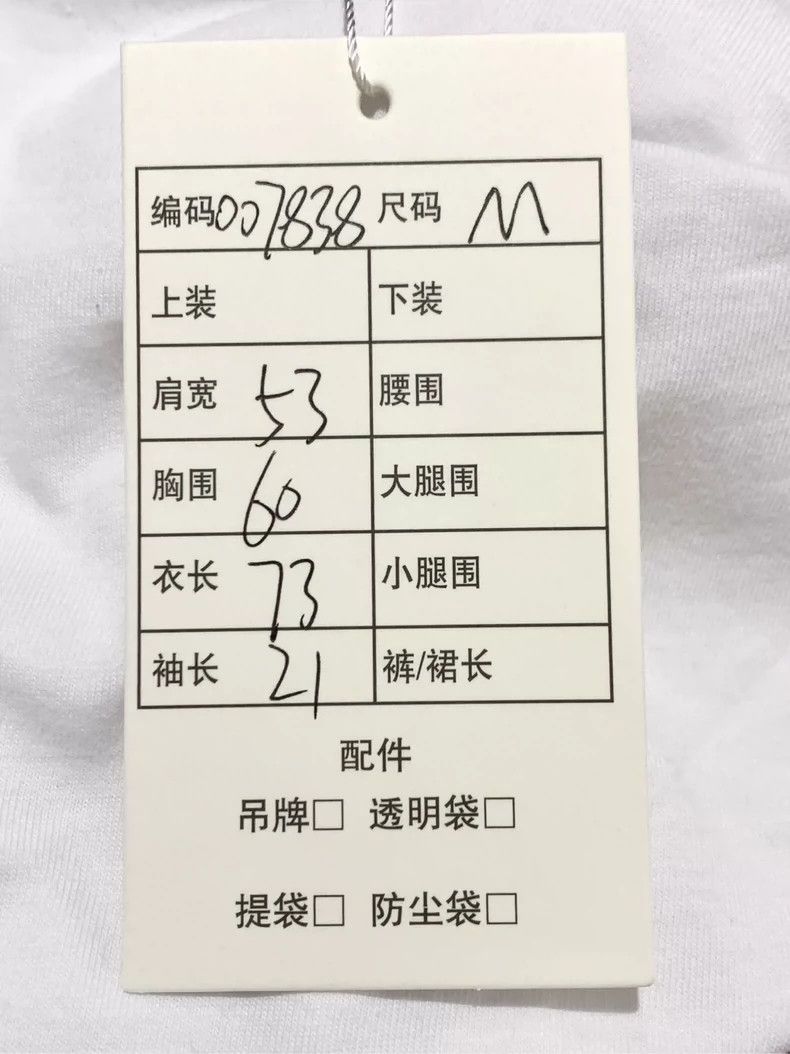 编码007838 尺码 M
上装 下装
肩宽 53 腰围
胸围 60 大腿围
衣长 73 小腿围
袖长 21 裤/裙长
配件
吊牌□ 透明袋□
提袋□ 防尘袋□